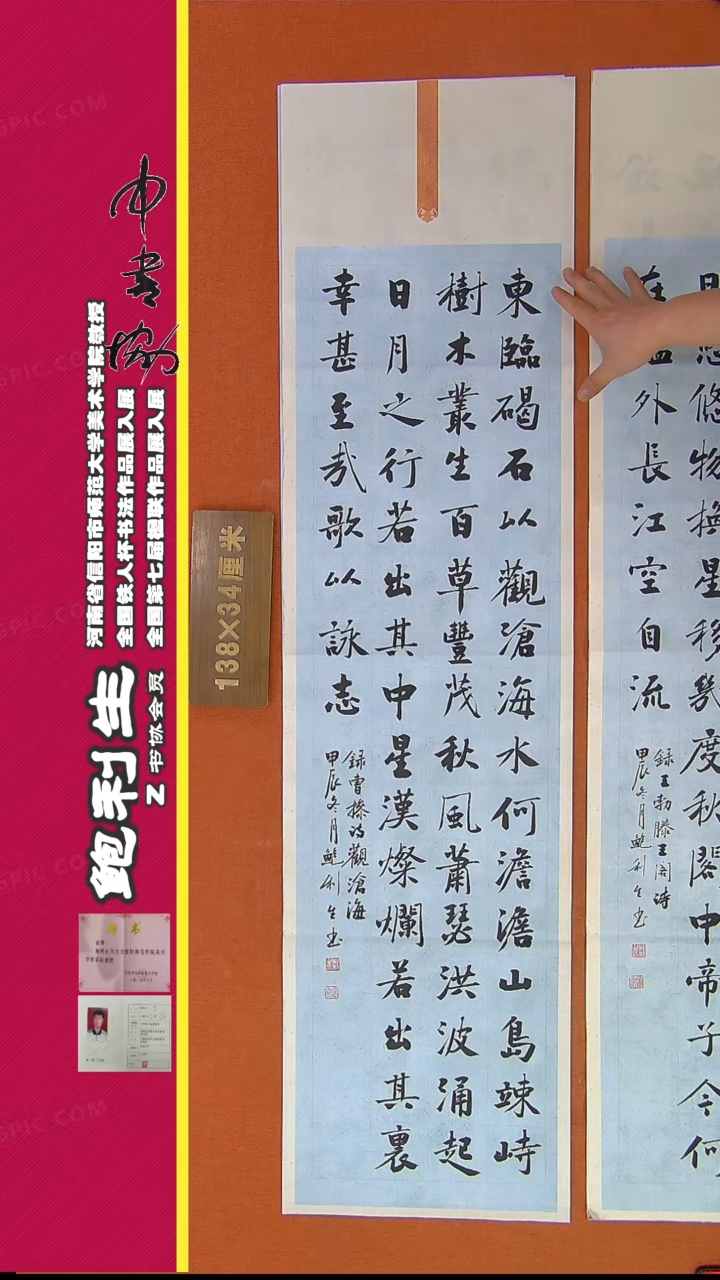 中書協
河南省信阳市师范大学美术学院教授
全国铁人杯书法作品展入展
全国第七届楹联作品展入展
鲍利生
Z 书协会员
聘书
138×34厘米
日悠悠物換星移幾度秋閣中帝子今何
在檻外長江空自流
録王勃滕王閣詩
甲辰冬月鮑利生书
東臨碣石以觀滄海水何澹澹山島竦峙
樹木叢生百草豐茂秋風蕭瑟洪波涌起
日月之行若出其中星漢燦爛若出其裏
幸甚至哉歌以詠志
録曹操诗觀滄海
甲辰冬月鮑利生书